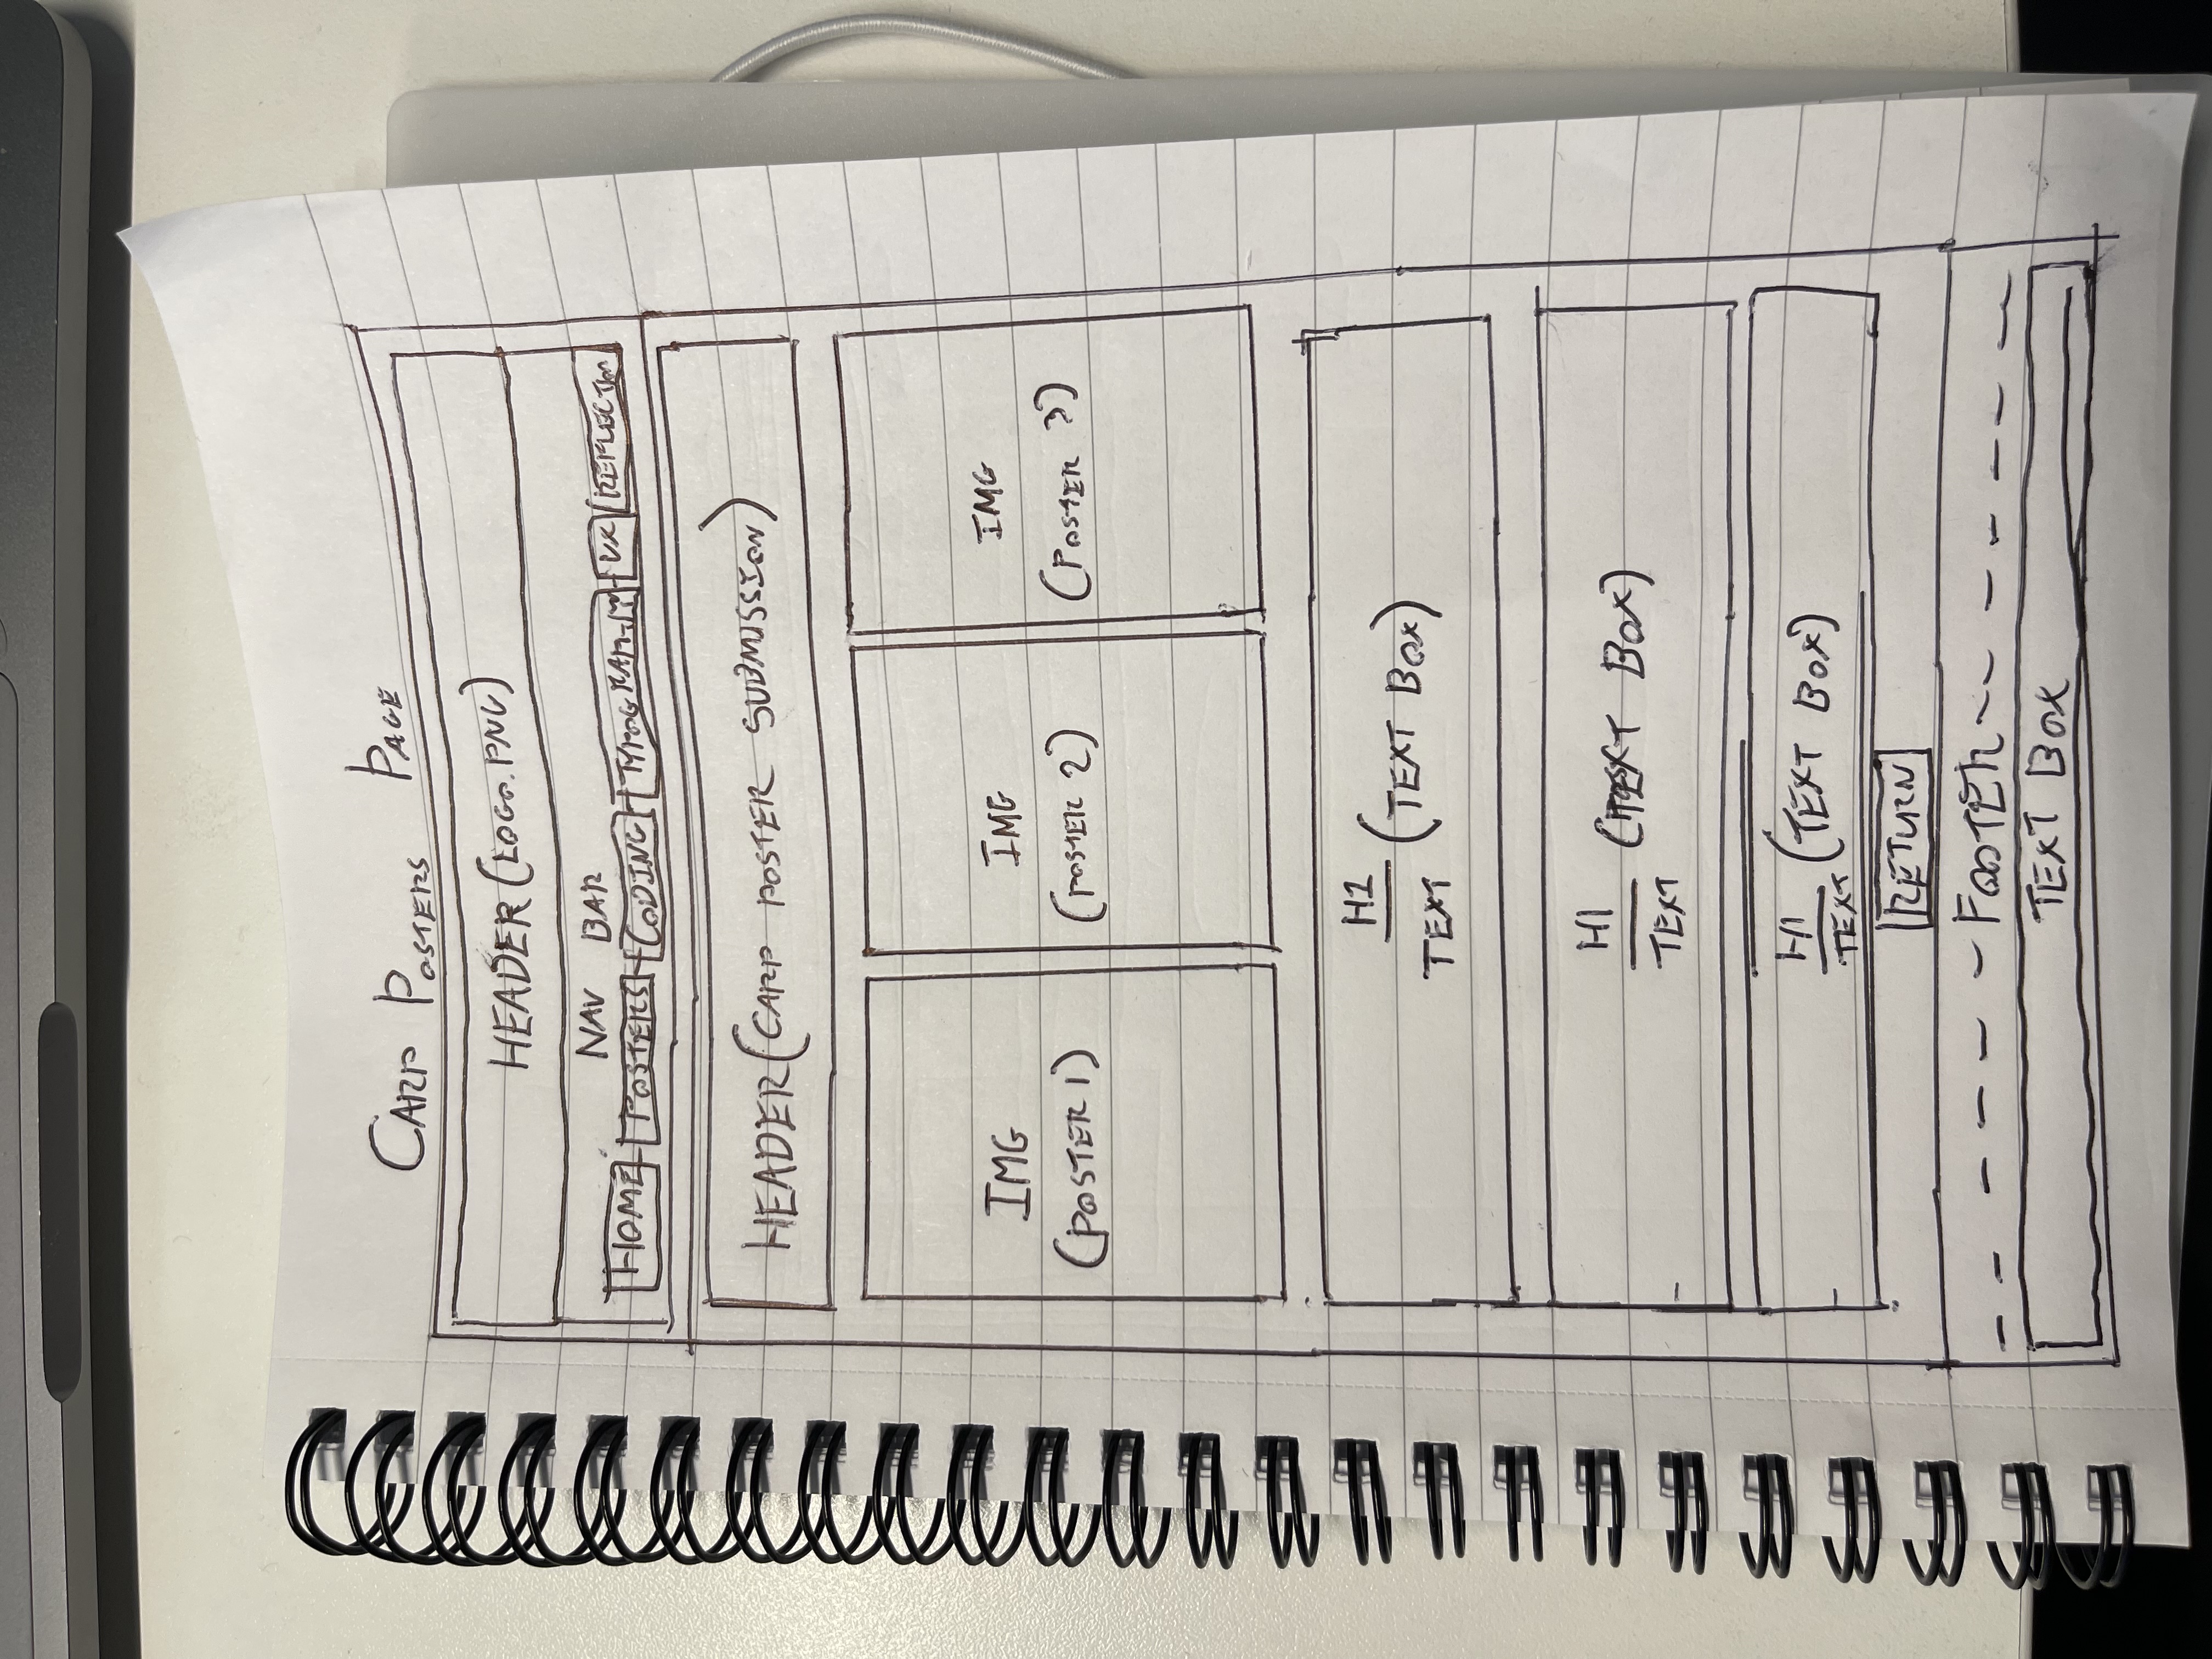 CARP POSTERS PAGE
HEADER (LOGO.PNG)
NAV BAR
HOME POSTERS CODING TYPOGRAPHY UX REFLECTION
HEADER (CARP POSTER SUBMISSION)
IMG
(POSTER 1)
IMG
(POSTER 2)
IMG
(POSTER 3)
H1
TEXT (TEXT BOX)
H1
TEXT (TEXT BOX)
H1
TEXT (TEXT BOX)
RETURN
FOOTER
TEXT BOX